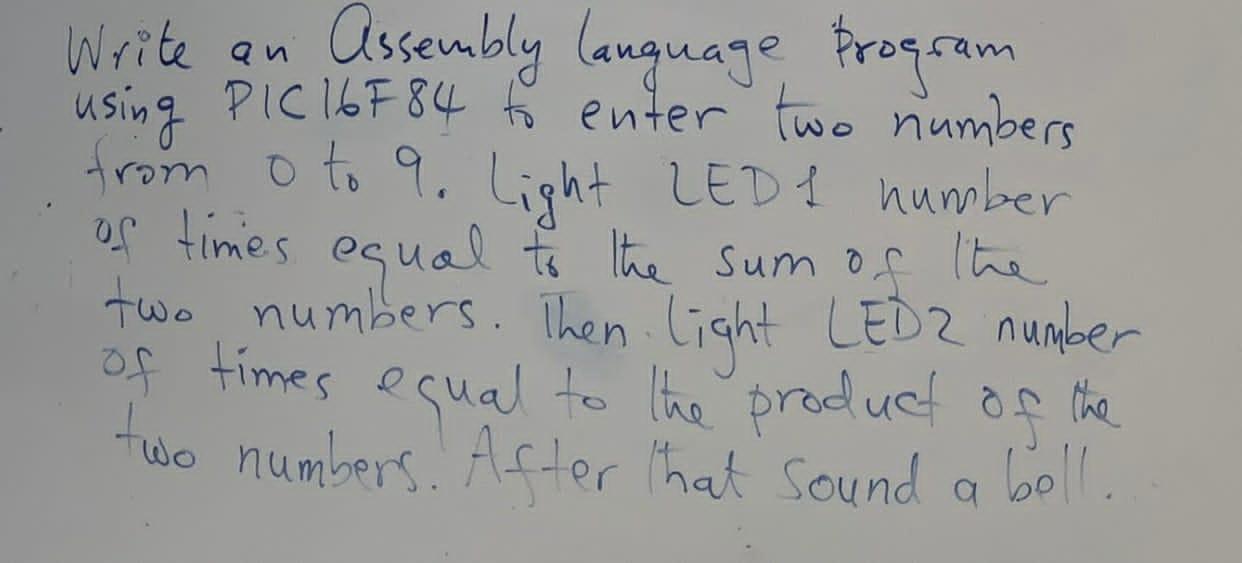 Write an Assembly language Program
using PIC16F84 to enter two numbers
from 0 to 9. Light LED1 number
of times equal to the sum of the
two numbers. Then light LED2 number
of times equal to the product of the
two numbers. After that Sound a bell.